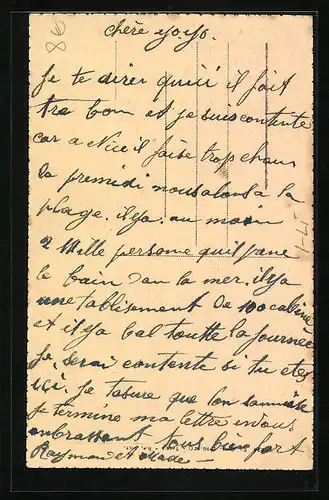 8€
chère yoyo.
je te direr quici il fait
tre bon et je suis contente
car a Nice il faise trop chaux
la premidi nous alons a la
plage. il ya. au moin
2 Mille persone qui pane
le bain dan la mer. il ya
une tablisement De 100 cabine
et il ya bal toutte la journée
je serai contente si tu etes
içi. je tasure que lon samuise
je termine ma lettre en vous
enbrassent tous bien fort
Raymond et Made